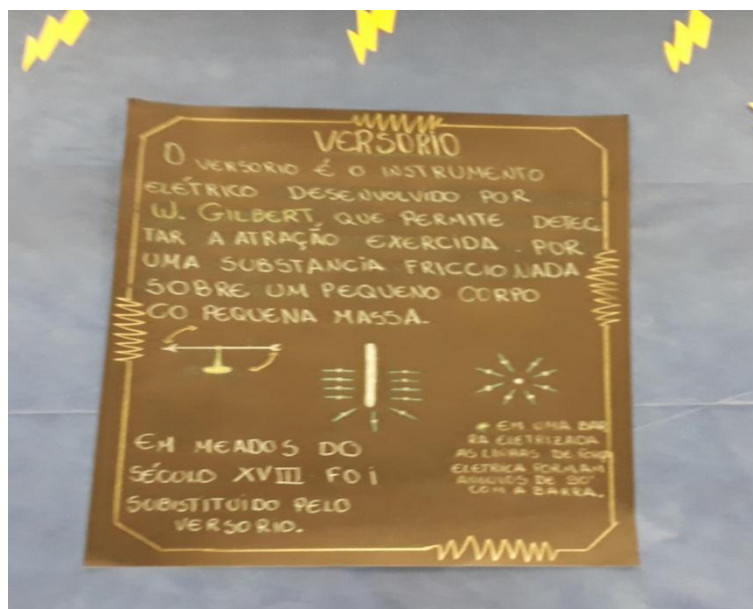 VERSORIO
O VERSORIO É O INSTRUMENTO
ELÉTRICO DESENVOLVIDO POR
W. GILBERT, QUE PERMITE DETEC
TAR A ATRAÇÃO EXERCIDA POR
UMA SUBSTANCIA FRICCIONADA
SOBRE UM PEQUENO CORPO
CO PEQUENA MASSA.
EM MEADOS DO
SÉCULO XVIII FOI
SUBISTITUIDO PELO
VERSORIO.
EM UMA BAR
RA ELETRIZADA
AS LINHAS DE FORÇA
ELETRICA FORMAM
ANGULOS DE 90°
COM A BARRA.